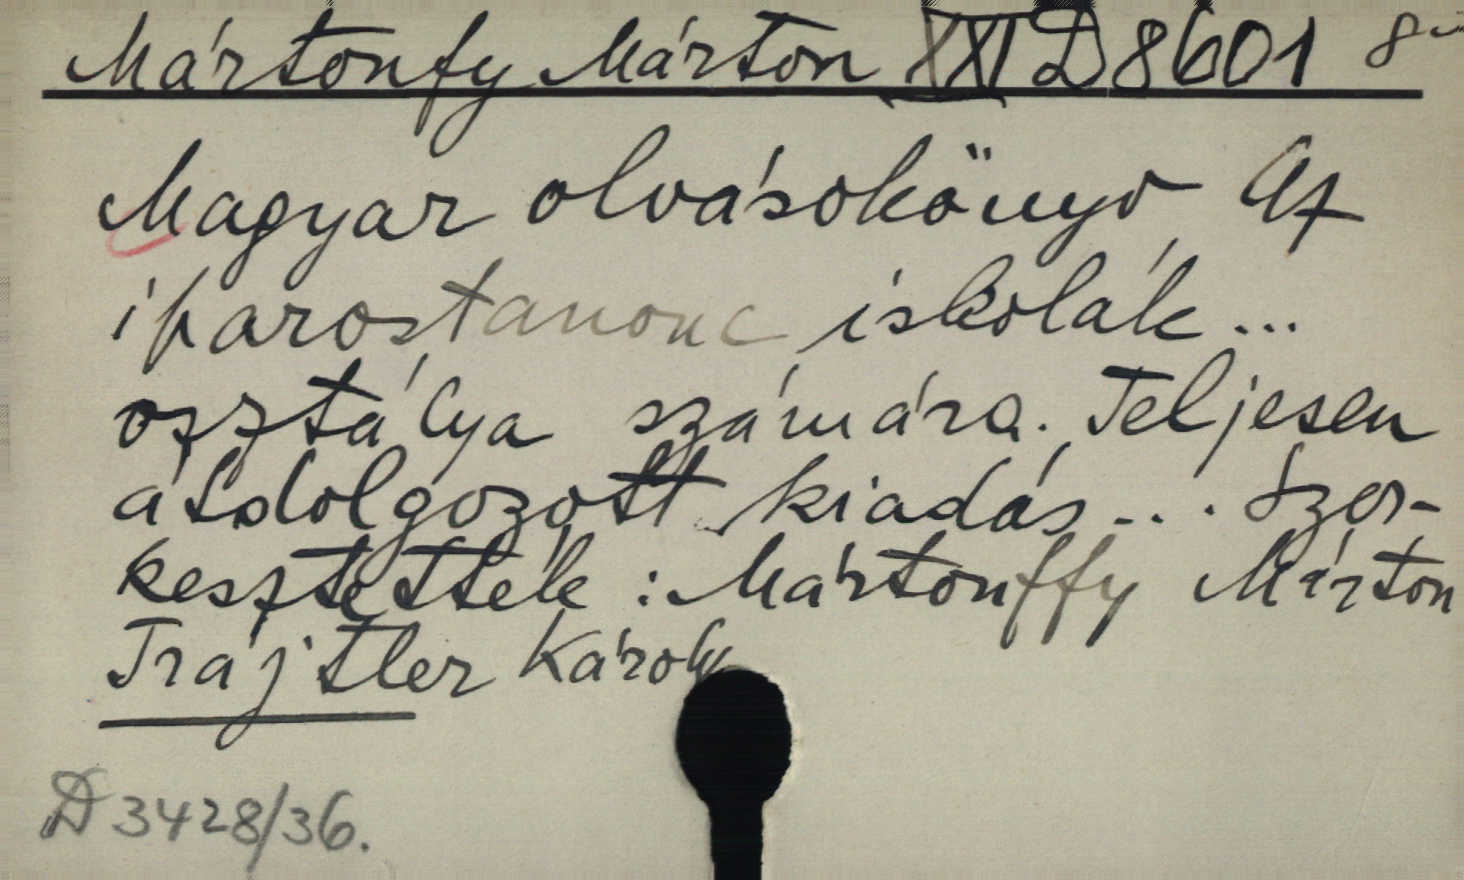 Mártonfy Márton XXI D 8601 8
Magyar olvásokönyv Az
iparostanonc iskolák ...
osztálya számára. Teljesen
átdolgozott kiadás ... Szer-
kesztették : Mártonffy Márton
Trájtler Károly
D 3428/36.